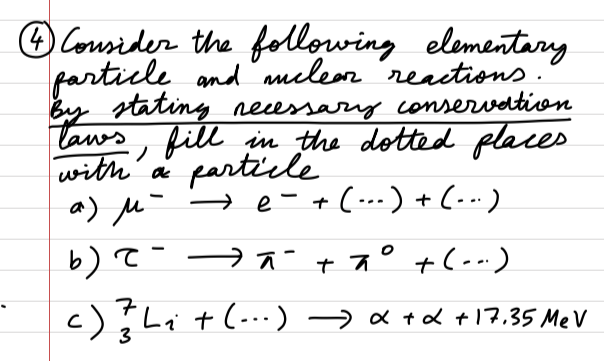 ④ Consider the following elementary
particle and nuclear reactions.
By stating necessary conservation
laws, fill in the dotted places
with a particle
a) μ⁻ → e⁻ + (...) + (...)
b) τ⁻ → π⁻ + π⁰ + (...)
c) ⁷₃Li + (...) → α + α + 17.35 MeV